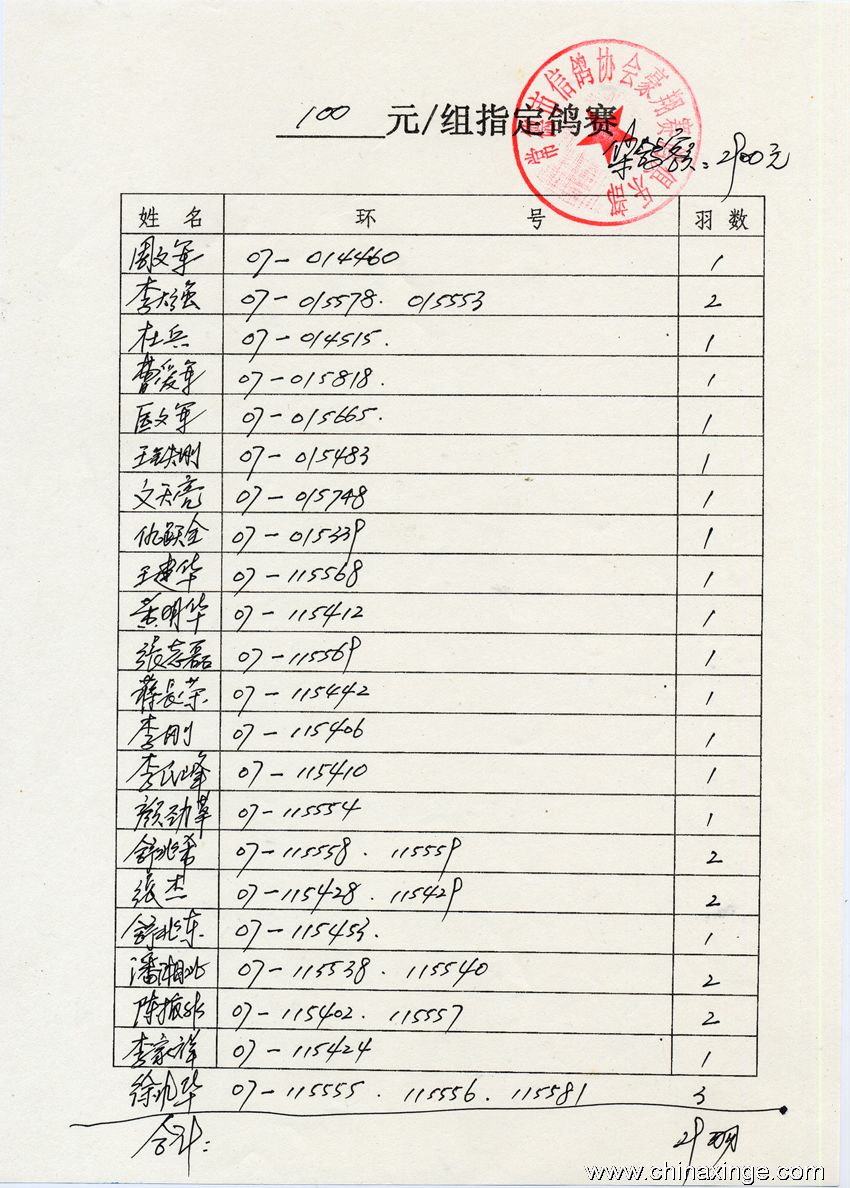 常德市信鸽协会豪翔赛鸽俱乐部
100 元/组指定鸽赛
奖鸽额：2900元
姓 名 环 号 羽 数
周文军 07-014460 1
李大强 07-015578. 015553 2
杜兵 07-014515. 1
曹爱军 07-015818. 1
匡文军 07-015665. 1
王铁刚 07-015483 1
文天亮 07-015748 1
仇联全 07-015339 1
王建华 07-115568 1
黄明华 07-115412 1
张志磊 07-115569 1
蒋长荣 07-115442 1
李刚 07-115406 1
李民峰 07-115410 1
颜劲草 07-115554 1
舒兆希 07-115558. 115559 2
张杰 07-115428. 115429 2
舒兆东 07-115453. 1
潘湘北 07-115538. 115540 2
陈振 07-115402. 115557 2
李家祥 07-115424 1
徐兆华 07-115555. 115556. 115581 3
合计： 29羽
www.chinaxinge.com